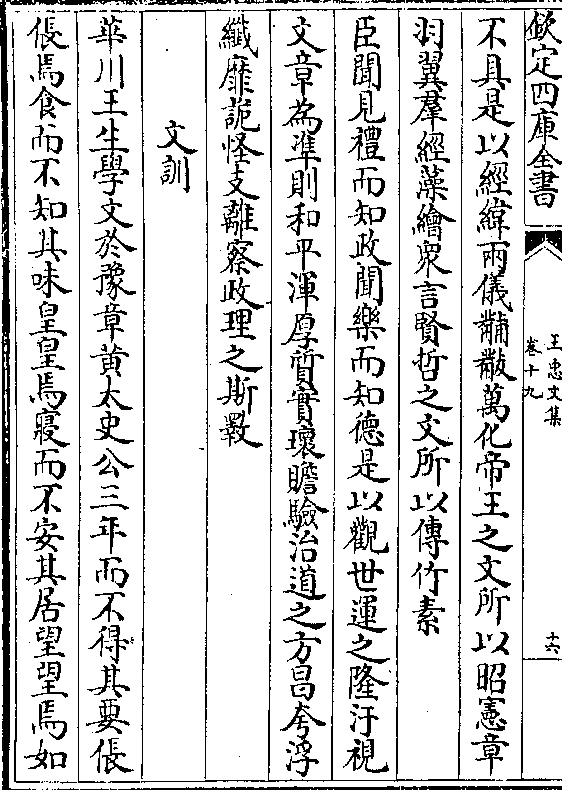 欽定四庫全書
王忠文集
卷十九
十六
不具是以經緯兩儀黼黻萬化帝王之文所以昭憲章
羽翼羣經藻繪衆言賢哲之文所以傳竹素
臣聞見禮而知政聞樂而知德是以觀世運之隆汙視
文章為準則和平渾厚質實瓌瞻驗治道之方昌夸浮
纖靡詭怪支離察政理之斯斁
文訓
華川王生學文於豫章黄太史公三年而不得其要倀
倀焉食而不知其味皇皇焉寢而不安其居望望焉如